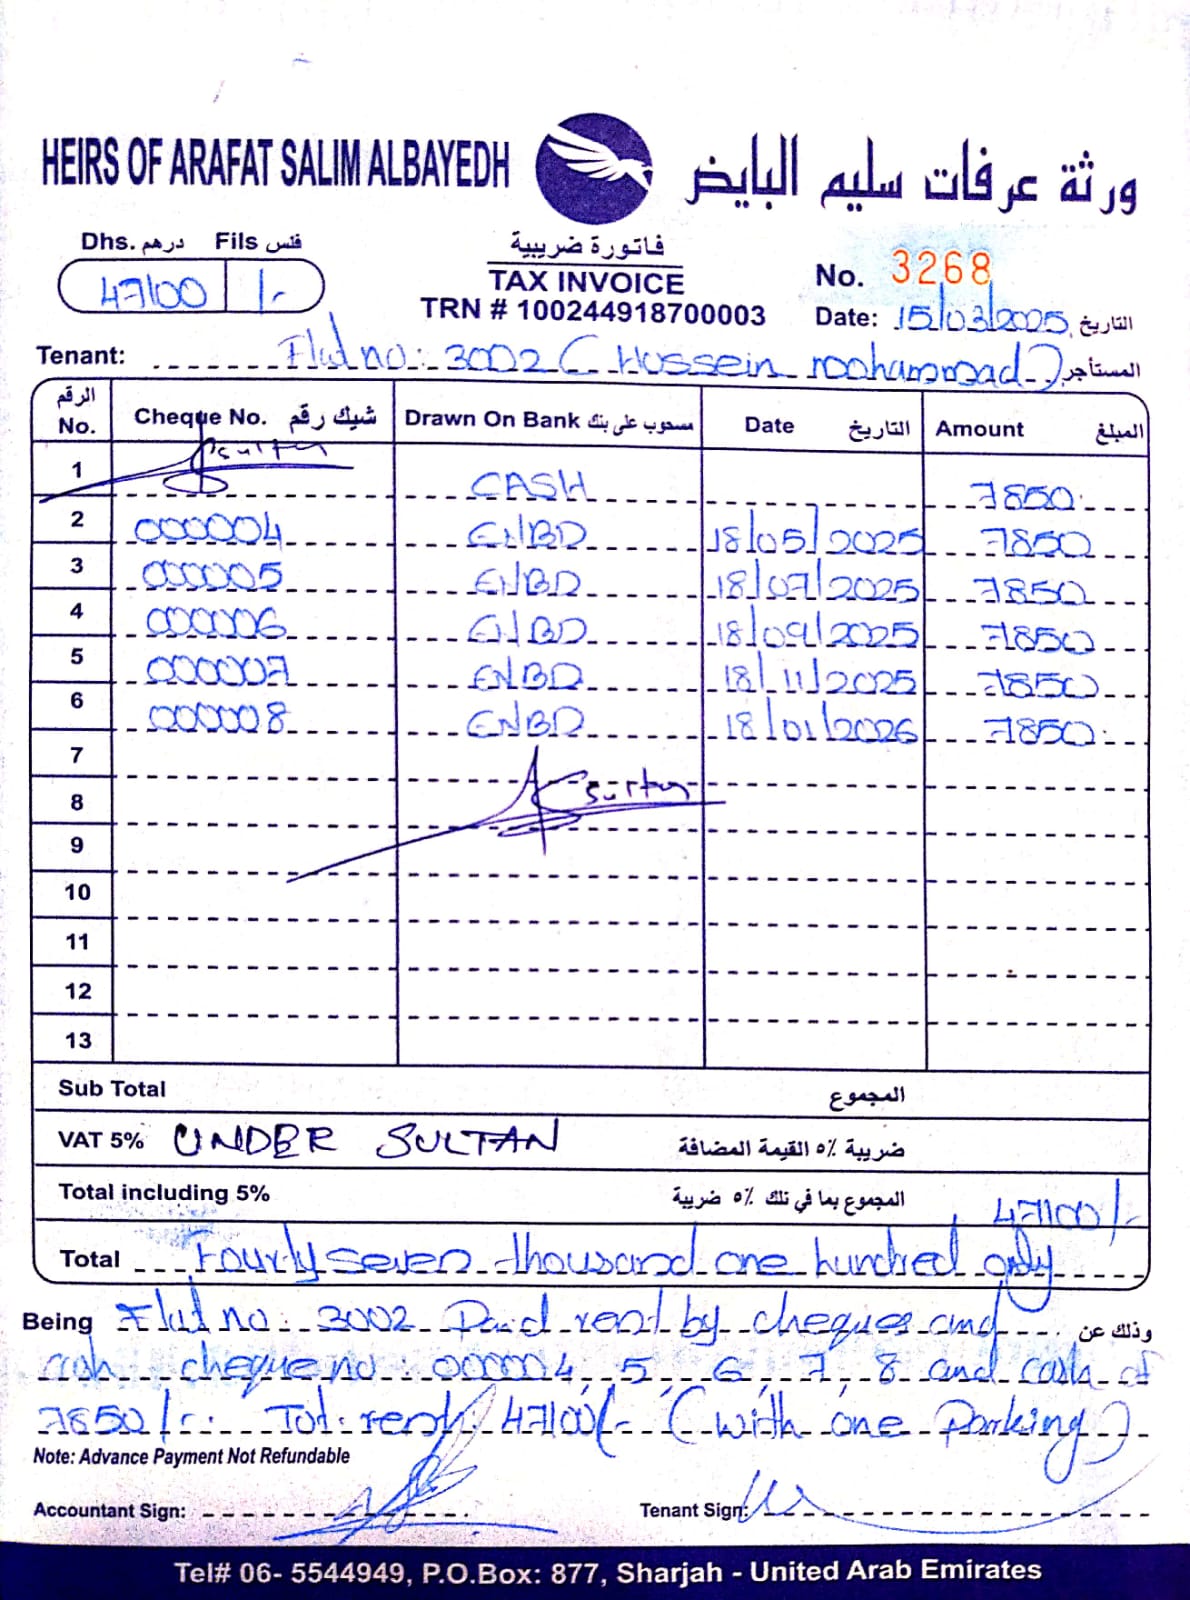 HEIRS OF ARAFAT SALIM ALBAYEDH ورثة عرفات سليم البايض
Dhs. درهم Fils فلس
47100 /-
فاتورة ضريبية
TAX INVOICE
TRN # 100244918700003
No. 3268
Date: 15/03/2025 التاريخ
Tenant: Flat no: 3002 (Hussein mohammad) المستأجر
الرقم No. Cheque No. شيك رقم Drawn On Bank مسحوب على بنك Date التاريخ Amount المبلغ
sultan
1 CASH 7850
2 000004 ENBD 18/05/2025 7850
3 000005 ENBD 18/07/2025 7850
4 000006 ENBD 18/09/2025 7850
5 000007 ENBD 18/11/2025 7850
6 000008 ENBD 18/01/2026 7850
7
8 sultan
9
10
11
12
13
Sub Total المجموع
VAT 5% UNDER SULTAN ضريبة ٥٪ القيمة المضافة
Total including 5% المجموع بما في تلك ٥٪ ضريبة 47100/-
Total Fourty seven thousand one hundred only
Being Flat no: 3002 Paid rent by cheques and وذلك عن
cash cheque no: 000004, 5, 6, 7, 8 and cash of
7850/- Tot: rent 47100/- (with one Parking)
Note: Advance Payment Not Refundable
Accountant Sign: Tenant Sign:
Tel# 06- 5544949, P.O.Box: 877, Sharjah - United Arab Emirates